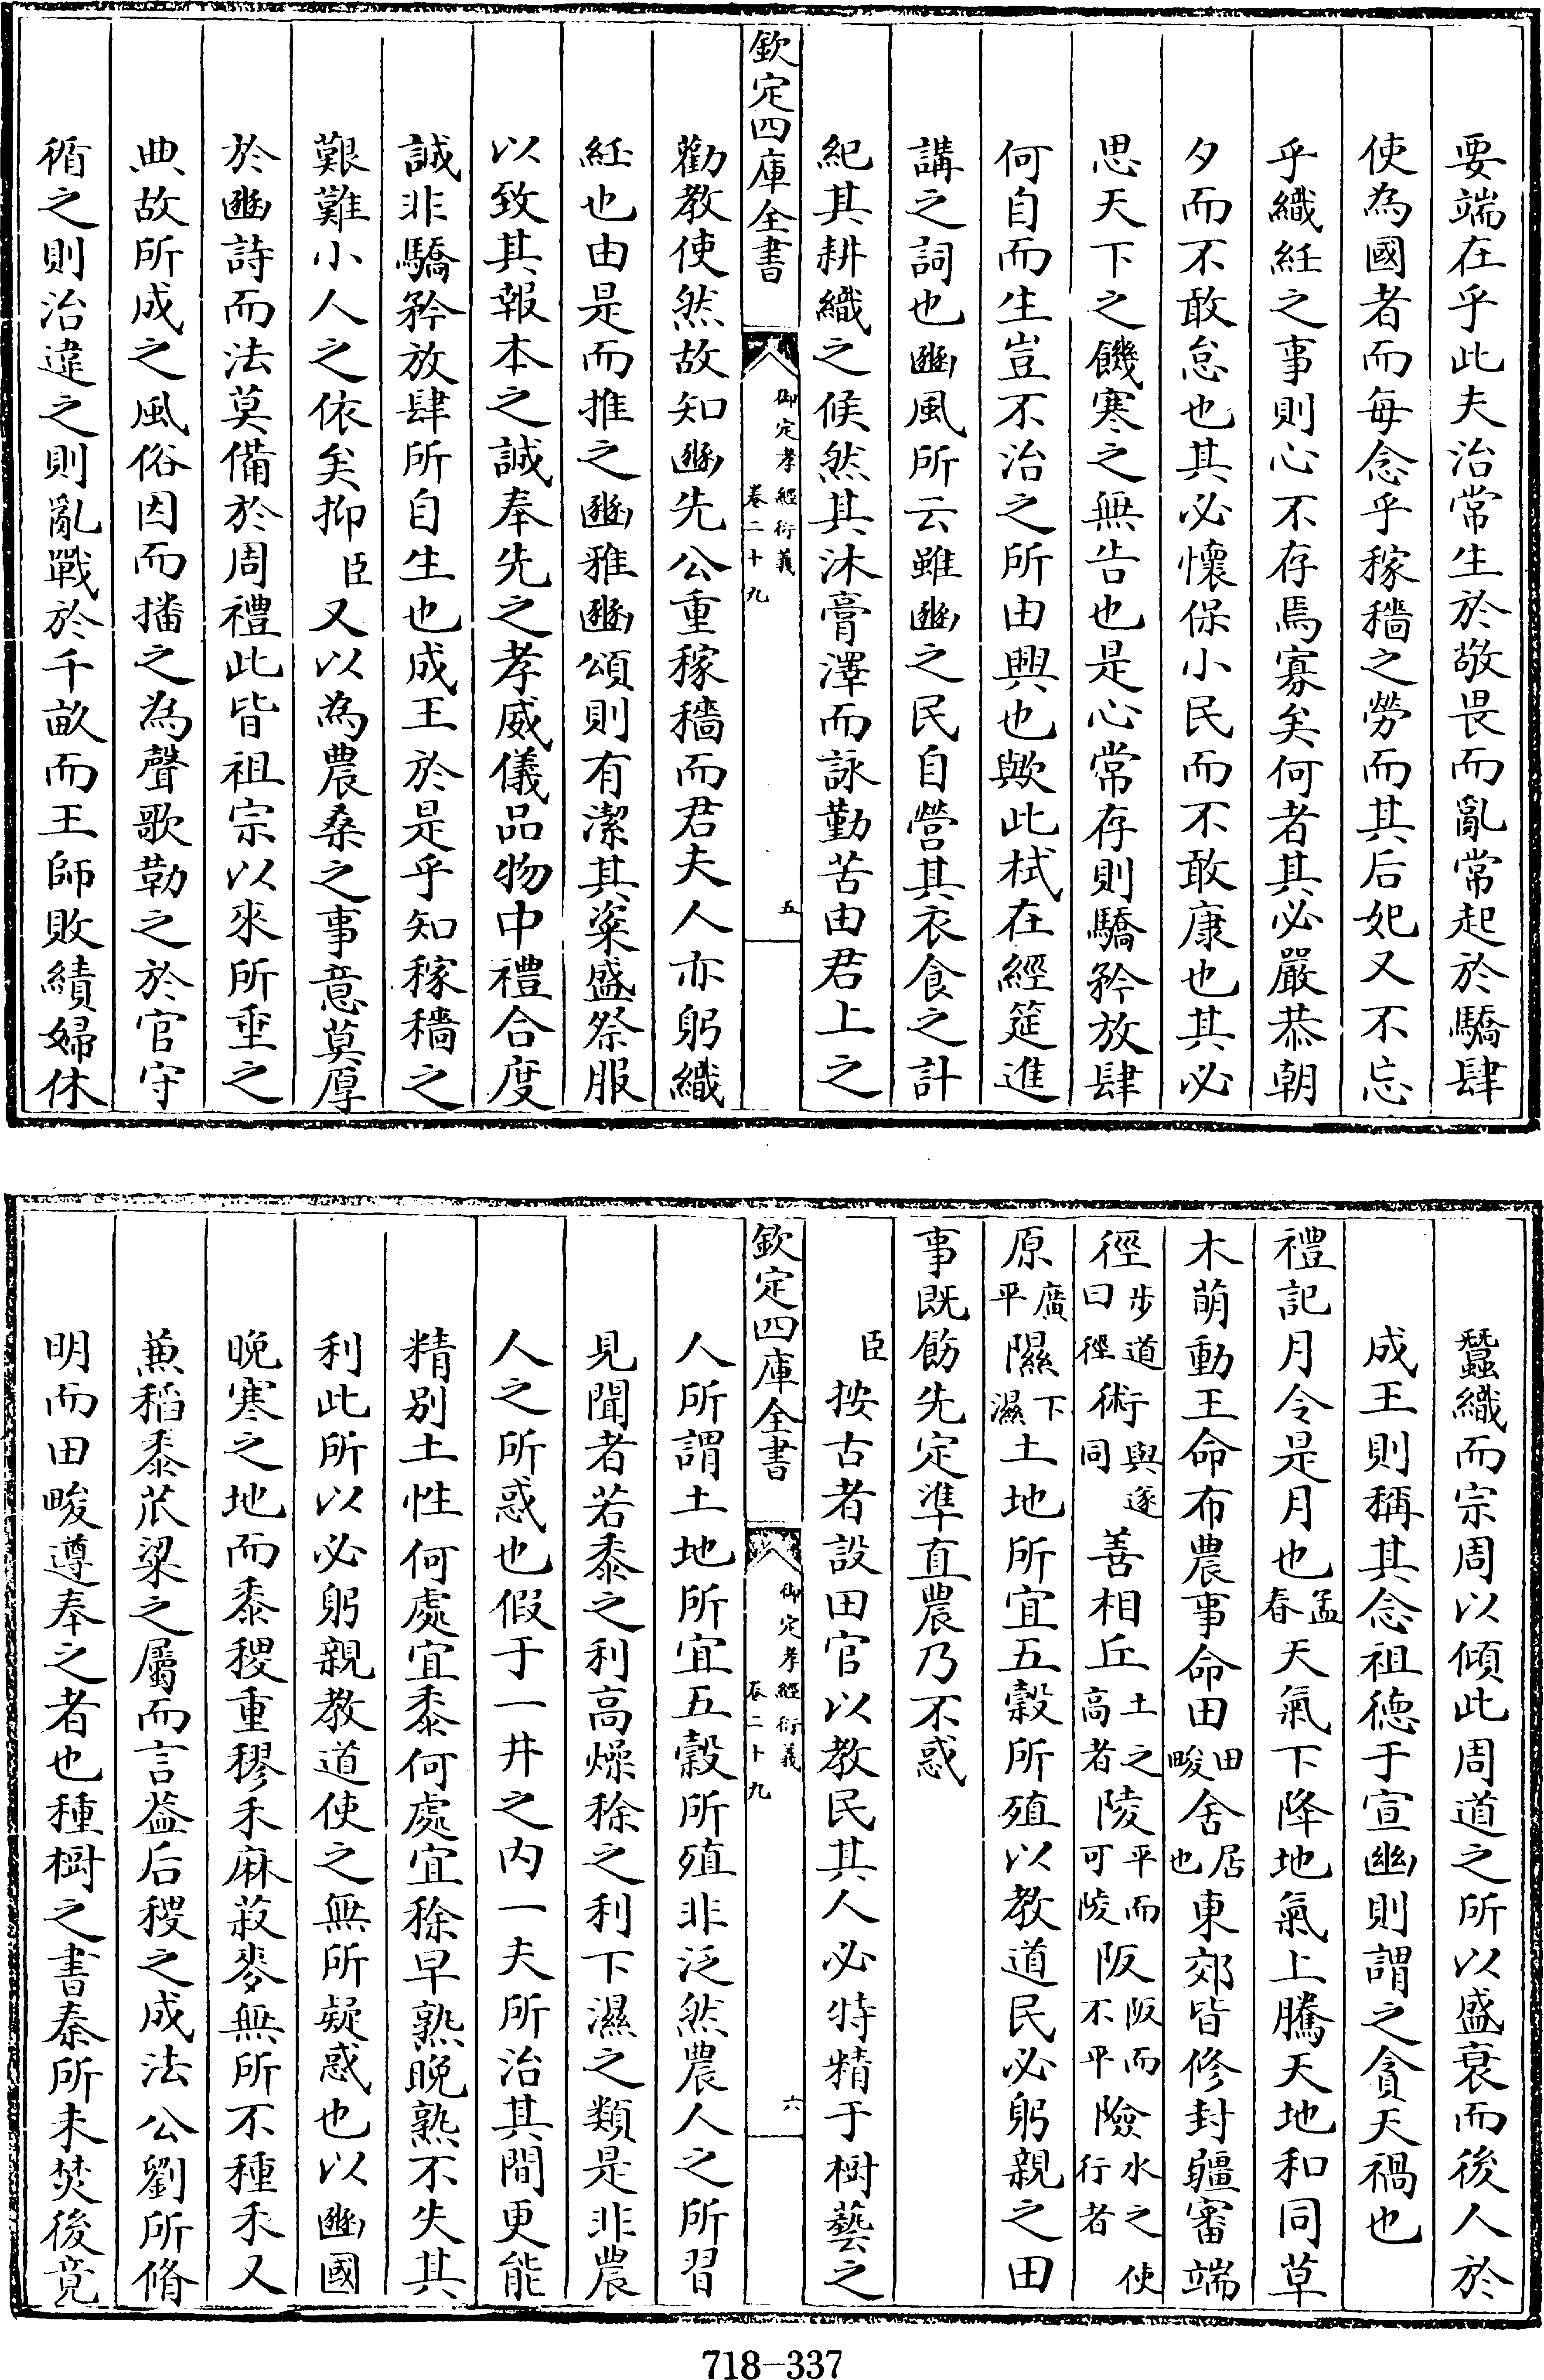 要端在乎此夫治常生於敬畏而亂常起於驕肆
使為國者而每念乎稼穡之勞而其后妃又不忘
乎織紝之事則心不存焉寡矣何者其必嚴恭朝
夕而不敢怠也其必懷保小民而不敢康也其必
思天下之饑寒之無告也是心常存則驕矜放肆
何自而生豈不治之所由興也歟此栻在經筵進
講之詞也豳風所云雖豳之民自營其衣食之計
紀其耕織之候然其沐膏澤而詠勤苦由君上之
欽定四庫全書 御定孝經衍義 卷二十九 五
勸教使然故知豳先公重稼穡而君夫人亦躬織
紝也由是而推之豳雅豳頌則有潔其粢盛祭服
以致其報本之誠奉先之孝威儀品物中禮合度
誠非驕矜放肆所自生也成王於是乎知稼穡之
艱難小人之依矣抑臣又以為農桑之事意莫厚
於豳詩而法莫備於周禮此皆祖宗以來所垂之
典故所成之風俗因而播之為聲歌勒之於官守
循之則治違之則亂戰於千畝而王師敗績婦休
蠶織而宗周以傾此周道之所以盛衰而後人於
成王則稱其念祖德于宣幽則謂之貪天禍也
禮記月令是月也孟春天氣下降地氣上騰天地和同草
木萌動王命布農事命田田畯舍居也東郊皆修封疆審端
徑步道曰徑術與遂同善相丘土之高者陵平而可陵阪阪而不平險水之行者使
原廣平隰下濕土地所宜五穀所殖以教道民必躬親之田
事既飭先定準直農乃不惑
臣按古者設田官以教民其人必特精于樹藝之
欽定四庫全書 御定孝經衍義 卷二十九 六
人所謂土地所宜五穀所殖非泛然農人之所習
見聞者若黍之利高燥稌之利下濕之類是非農
人之所惑也假于一井之內一夫所治其間更能
精別土性何處宜黍何處宜稌早熟晚熟不失其
利此所以必躬親教道使之無所疑惑也以豳國
晚寒之地而黍稷重穋禾麻菽麥無所不種禾又
兼稻黍苽梁之屬而言葢后稷之成法公劉所脩
明而田畯遵奉之者也種樹之書秦所未焚後竟
718-337